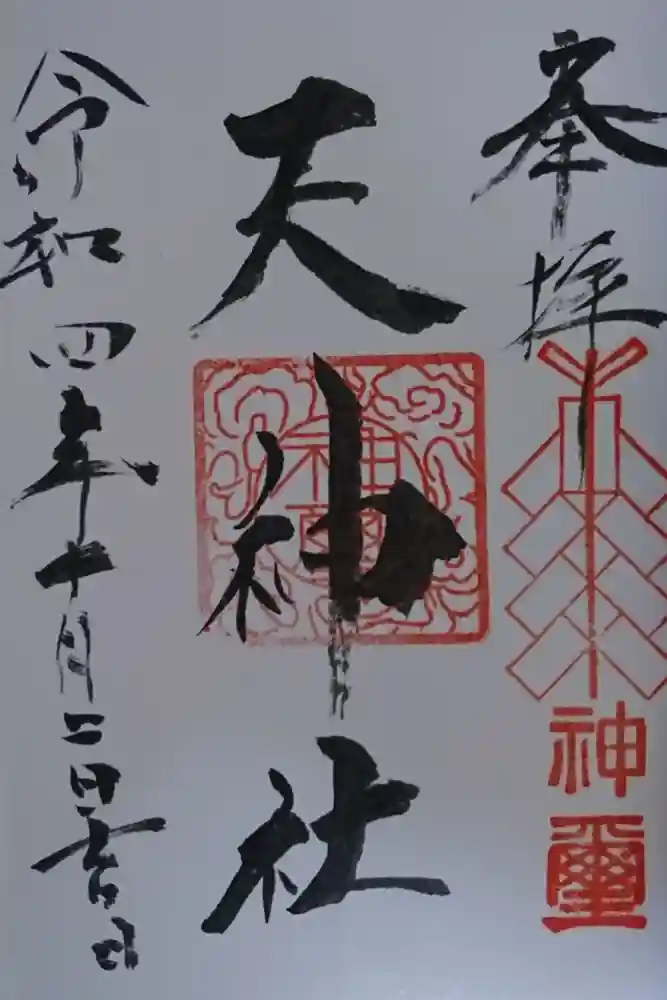 奉拝
神璽
天神社
神璽
令和四年十月二日吉日